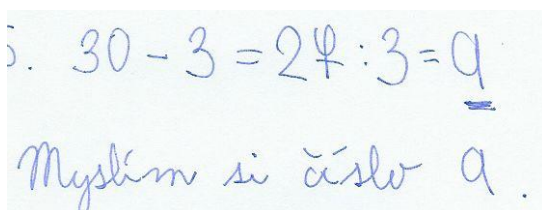 5. 30 - 3 = 27 : 3 = 9
Myslím si číslo 9.